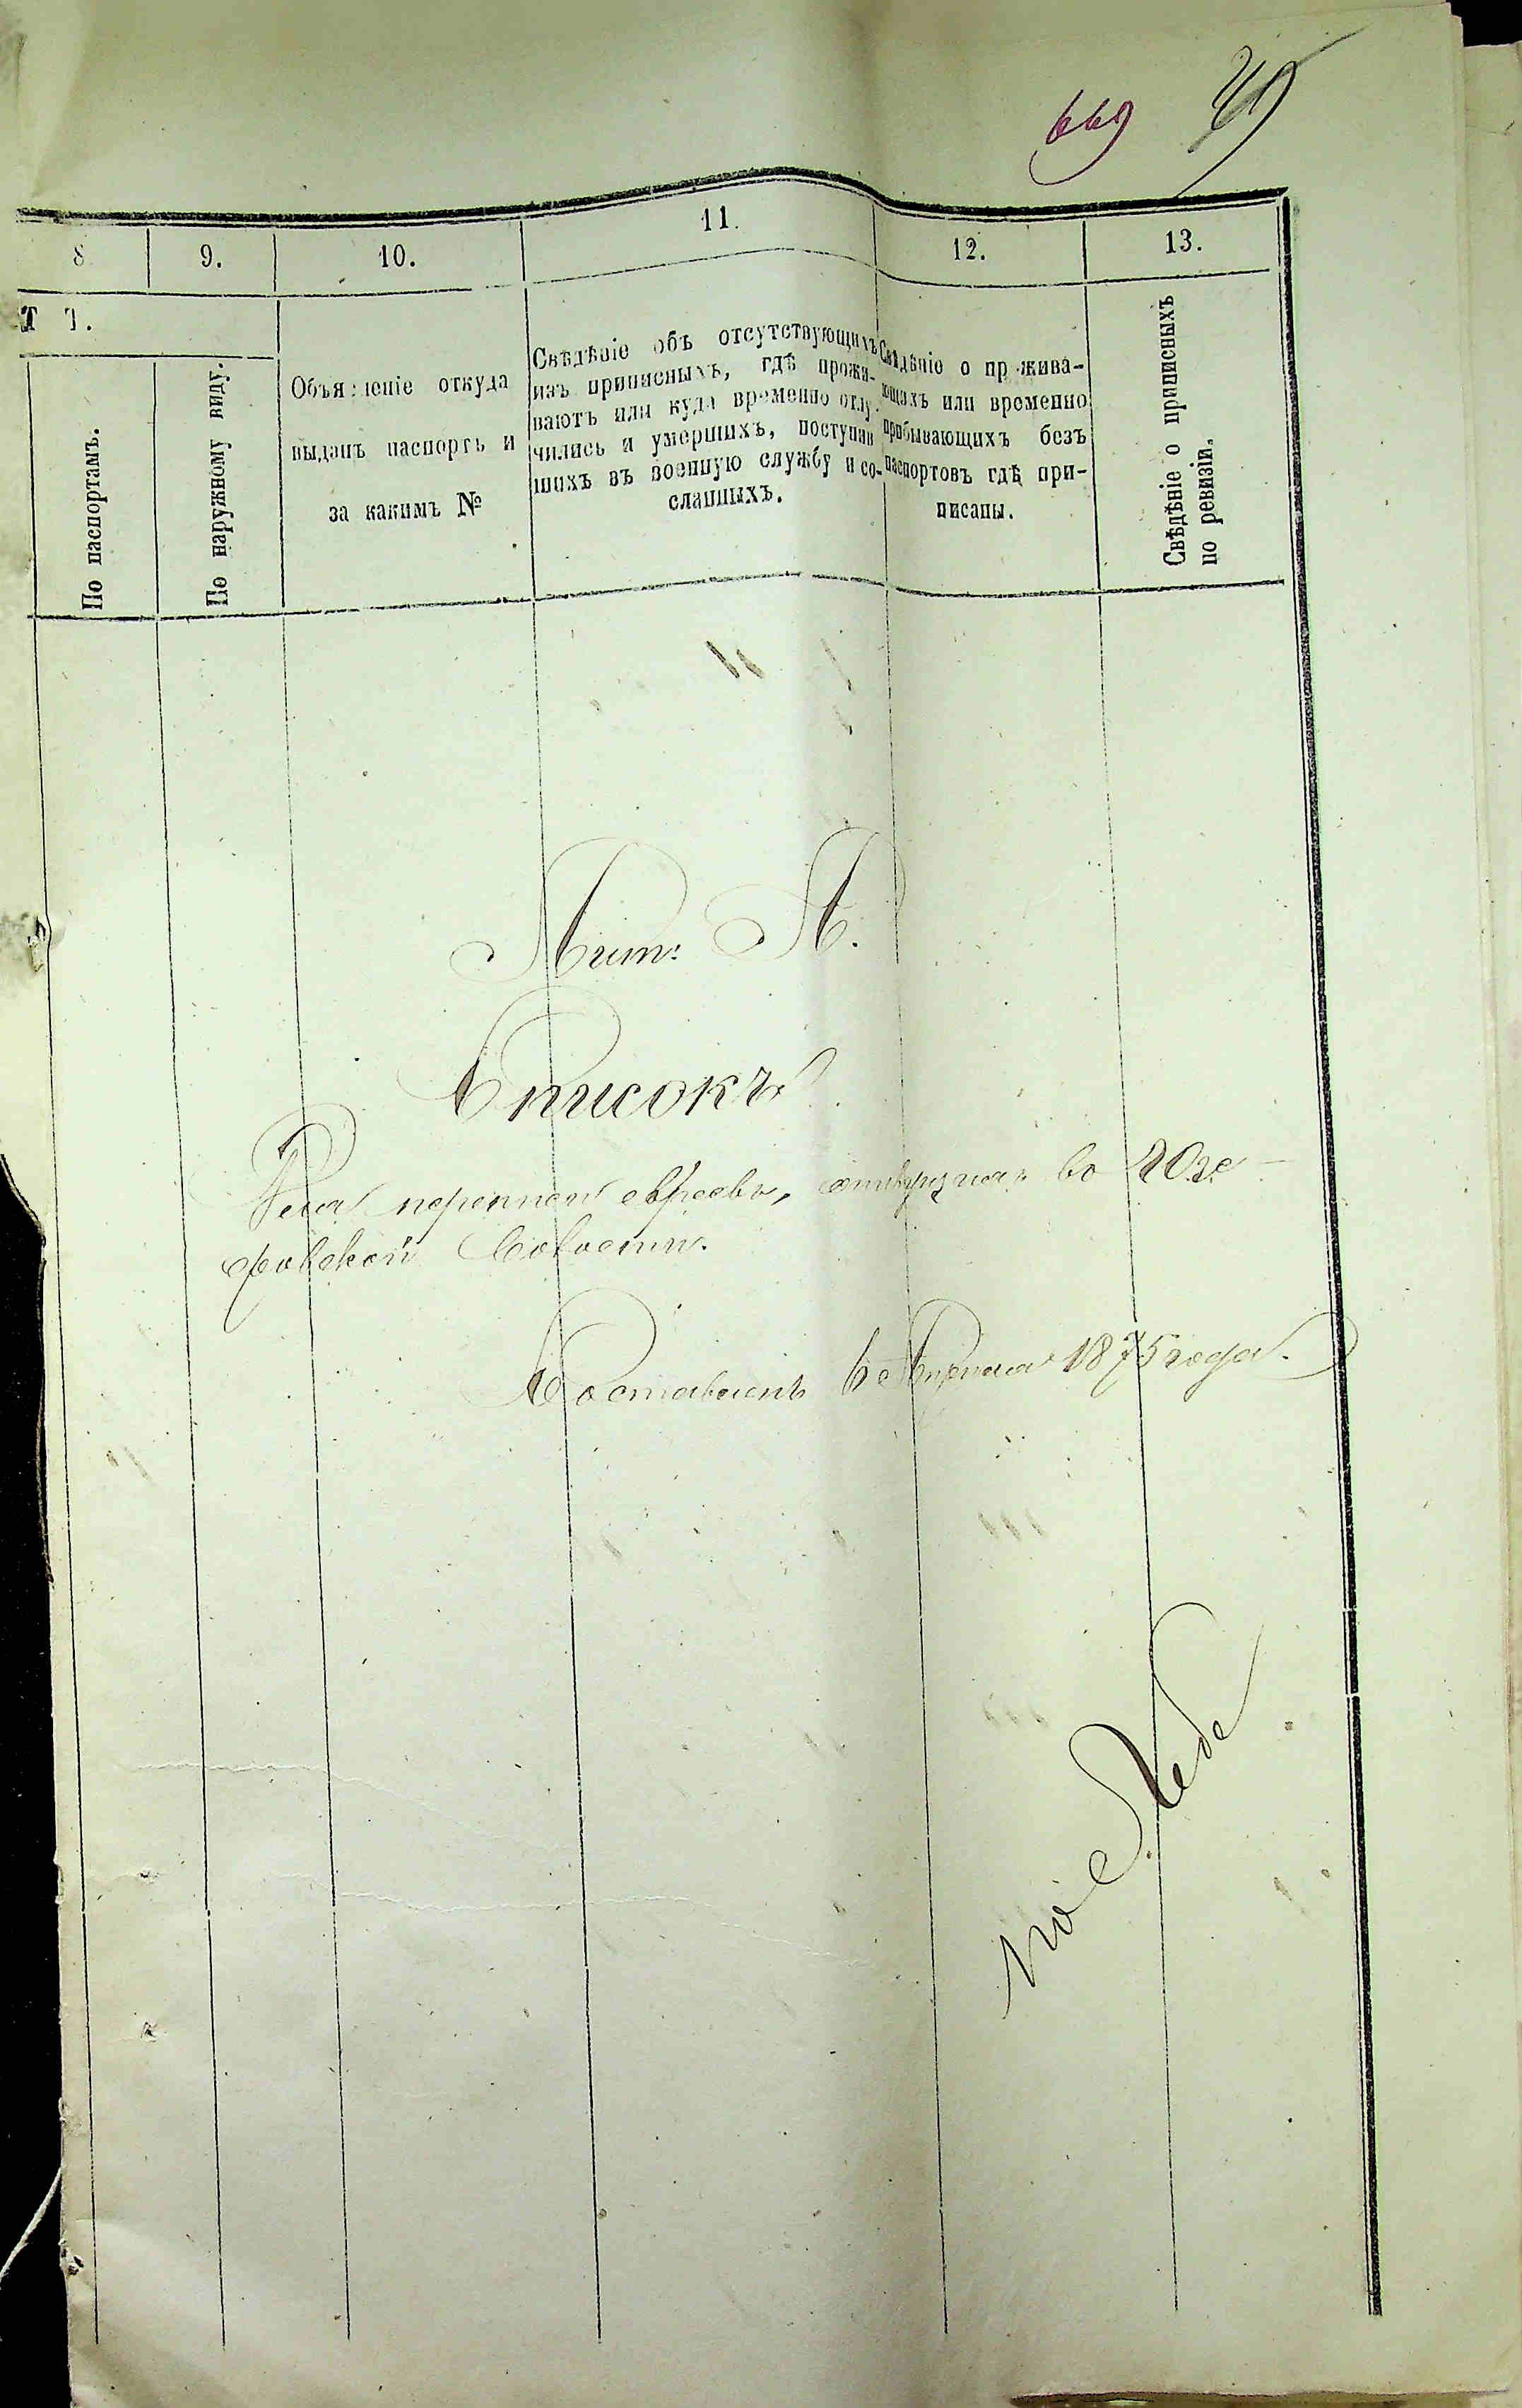 669 49
8 9. 10. 11. 12. 13.
Т Т.
По паспортамъ.
По наружному виду.
Объясненіе откуда
выданъ паспортъ и
за какимъ №
Свѣдѣніе объ отсутствующихъ
изъ приписныхъ, гдѣ прожи-
ваютъ или куда временно отлу-
чились и умершихъ, поступив
шихъ въ военную службу и со-
сланныхъ.
Свѣдѣніе о прожива-
ющихъ или временно
пребывающихъ безъ
паспортовъ гдѣ при-
писаны.
Свѣдѣніе о приписныхъ
по ревизіи.
Лит: А.
Списокъ
евреевъ, во Юзе-
фовской Волости.
Составленъ 1875 года.